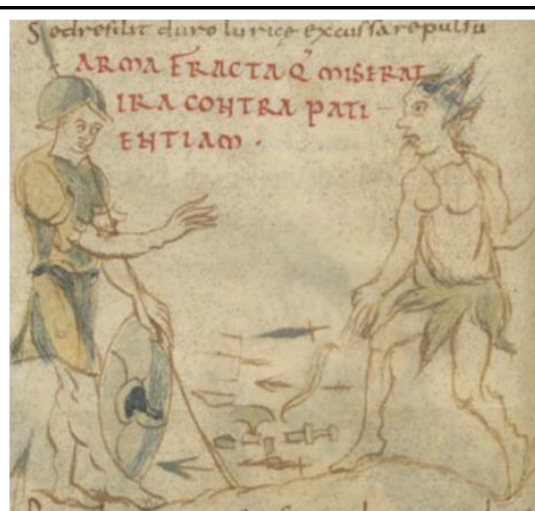 Sedresilit duro lurice excussa repulsu
ARMA FRACTA Q' MISERAT
IRA CONTRA PATI
ENTIAM ·